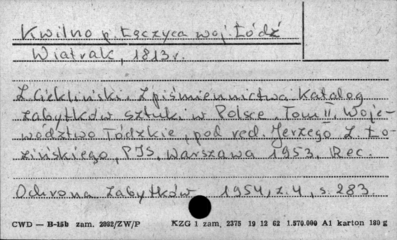 Kwilno p. Łęczyca woj. Łódź
Wiatrak, 1813 r.
Z. Ciekliński. Z piśmiennictwa. Katalog
zabytków sztuki w Polsce. Tom II, Woje-
wództwo Łódzkie, pod red. Jerzego Z. Ło-
zińskiego, PIS, Warszawa 1953. Rec.
Ochrona Zabytków 1954, z. 4, s. 283.
CWD — B-15b zam. 2002/ZW/P KZG 1 zam. 2375 19 12 62 1.570.000 A1 karton 180 g